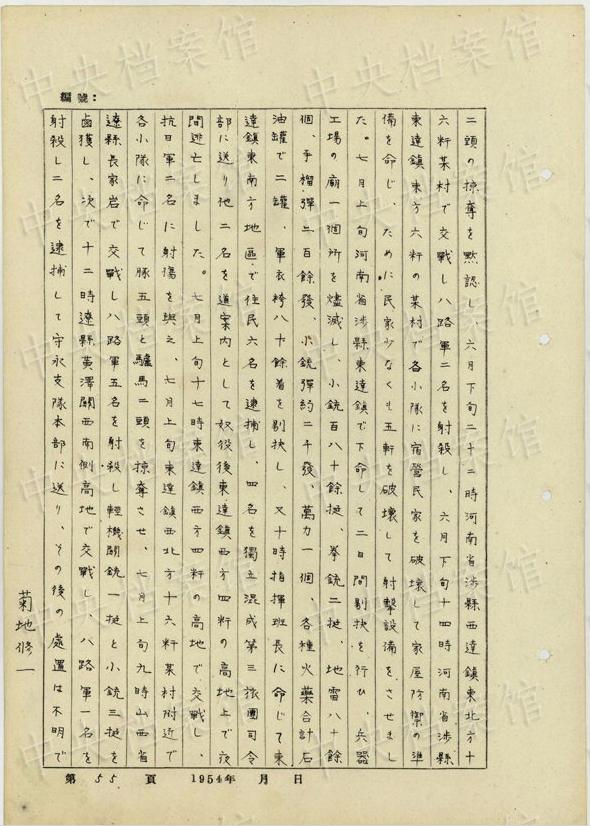 編號：
二頭の掠奪を黙認し、六月下旬二十二時河南省渉縣西達鎮東北方十
六粁某村で交戰し八路軍二名を射殺し、六月下旬十四時河南省渉縣
東達鎮東方六粁の某村で各小隊に宿營民家を破壊して家屋防禦の準
備を命じ、ために民家少なくも五軒を破壊して射撃設備をさせまし
た。七月上旬河南省渉縣東達鎮で下命して二日間剔抉を行ひ、兵器
工場の廟一個所を燼滅し、小銃百八十餘挺、拳銃二挺、地雷八十餘
個、手榴彈三百餘發、小銃彈約二千發、萬力一個、各種火藥合計石
油罐で二罐、軍衣袴八十餘着を剔抉し、又十時指揮班長に命じて東
達鎮東南方地區で住民六名を逮捕し、四名を獨立混成第三旅團司令
部に送り他二名を道案内として奴役後東達鎮西方四粁の高地上で夜
間逃亡しました。七月上旬十七時東達鎮西方四粁の高地で交戰し、
抗日軍二名に射傷を與え、七月上旬東達鎮西北方十六粁某村附近で
各小隊に命じて豚五頭と驢馬二頭を掠奪させ、七月上旬九時山西省
遼縣長家岩で交戰し八路軍五名を射殺し輕機關銃一挺と小銃三挺を
鹵獲し、次で十二時遼縣黃澤關西南側高地で交戰し、八路軍一名を
射殺し二名を逮捕して守永支隊本部に送り、その後の處置は不明で
菊地修一
第 55 頁 1954年 月 日
中央档案馆